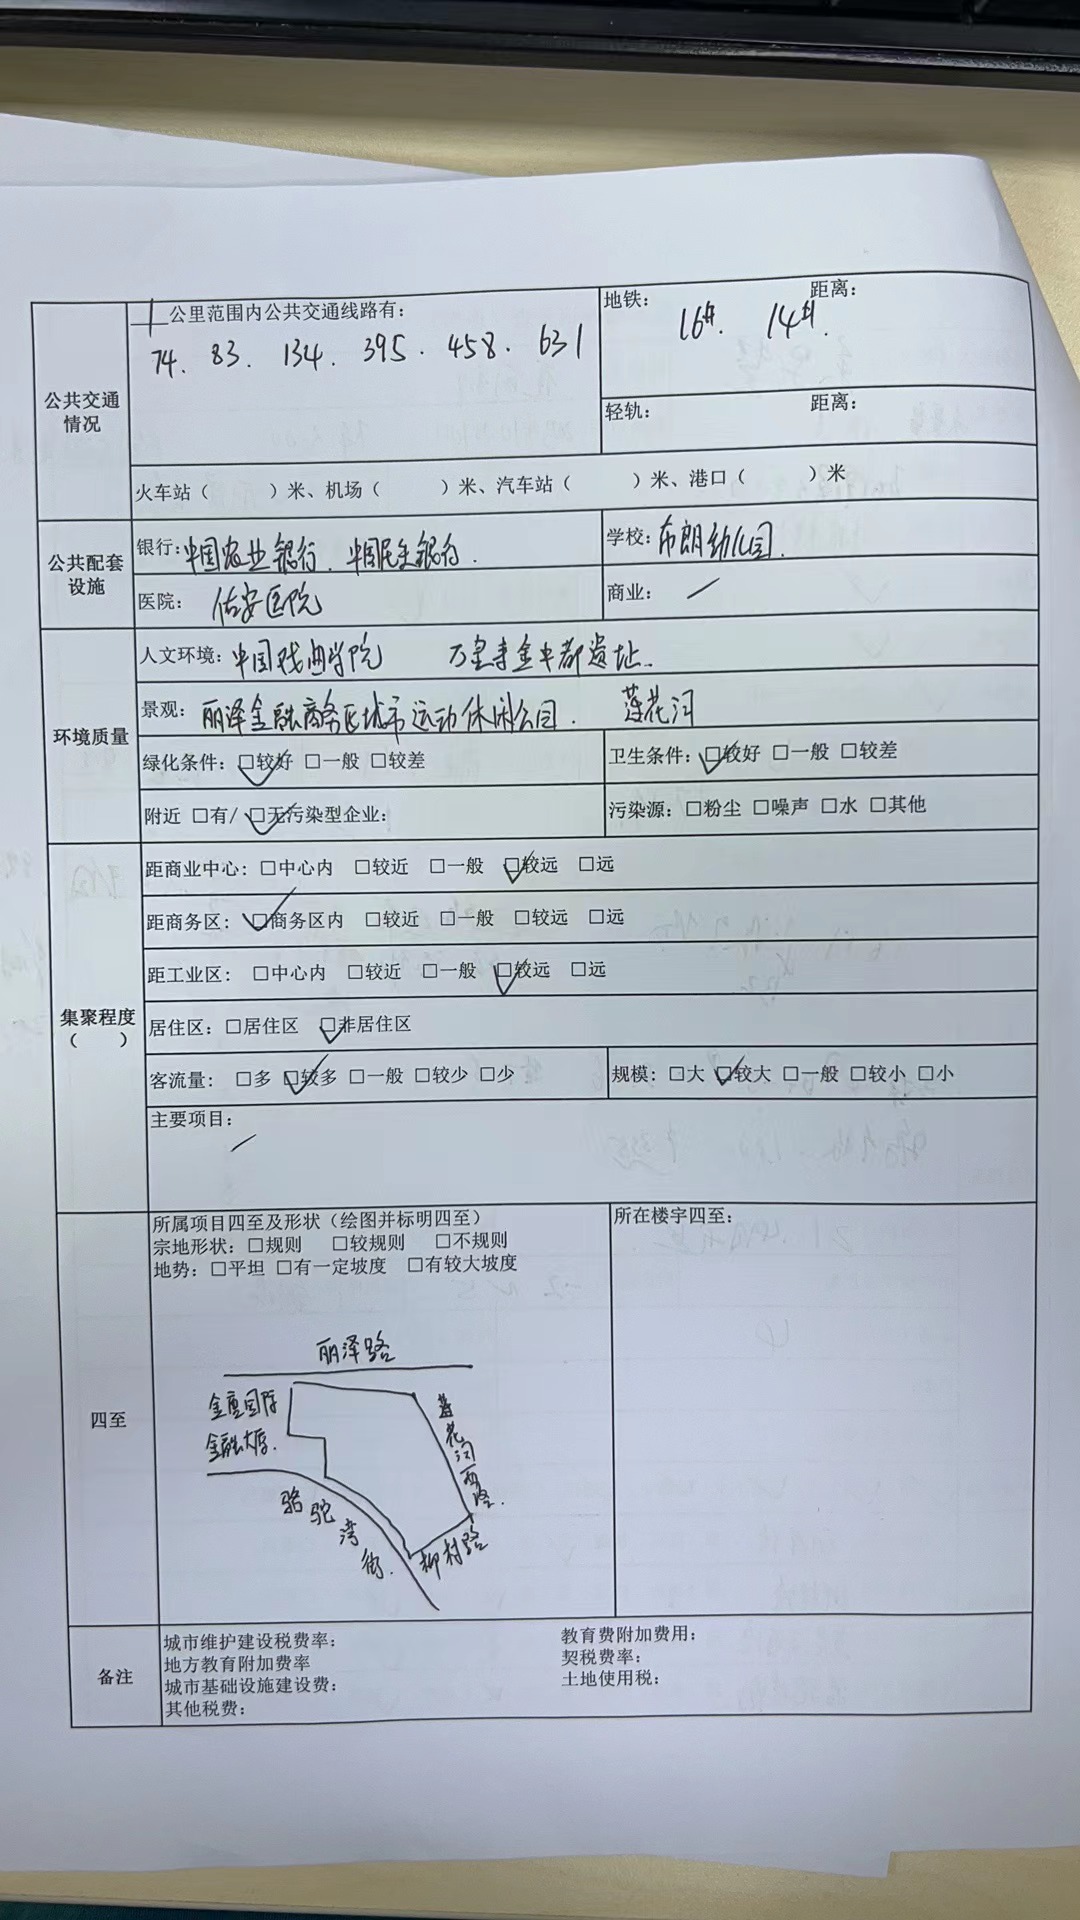 公共交通情况
1 公里范围内公共交通线路有：
74. 83. 134. 395. 458. 631
地铁： 距离：
16号. 14号.
轻轨： 距离：
火车站（ ）米、机场（ ）米、汽车站（ ）米、港口（ ）米
公共配套设施
银行：中国农业银行. 中国民生银行.
学校：布朗幼儿园.
医院： 佑安医院
商业： /
环境质量
人文环境：中国戏曲学院 万皇寺金中都遗址.
景观：丽泽金融商务区城市运动休闲公园. 莲花河
绿化条件：☑较好 □一般 □较差
卫生条件：☑较好 □一般 □较差
附近 □有/ ☑无污染型企业：
污染源：□粉尘 □噪声 □水 □其他
集聚程度（ ）
距商业中心：□中心内 □较近 □一般 ☑较远 □远
距商务区：☑商务区内 □较近 □一般 □较远 □远
距工业区：□中心内 □较近 □一般 ☑较远 □远
居住区：□居住区 ☑非居住区
客流量：□多 ☑较多 □一般 □较少 □少
规模：□大 ☑较大 □一般 □较小 □小
主要项目：
/
四至
所属项目四至及形状（绘图并标明四至）
宗地形状：□规则 □较规则 □不规则
地势：□平坦 □有一定坡度 □有较大坡度
所在楼宇四至：
丽泽路
金唐国际
金融大厦.
莲花河西路.
骆驼湾街.
柳村路
备注
城市维护建设税费率：
教育费附加费用：
地方教育附加费率
契税费率：
城市基础设施建设费：
土地使用税：
其他税费：